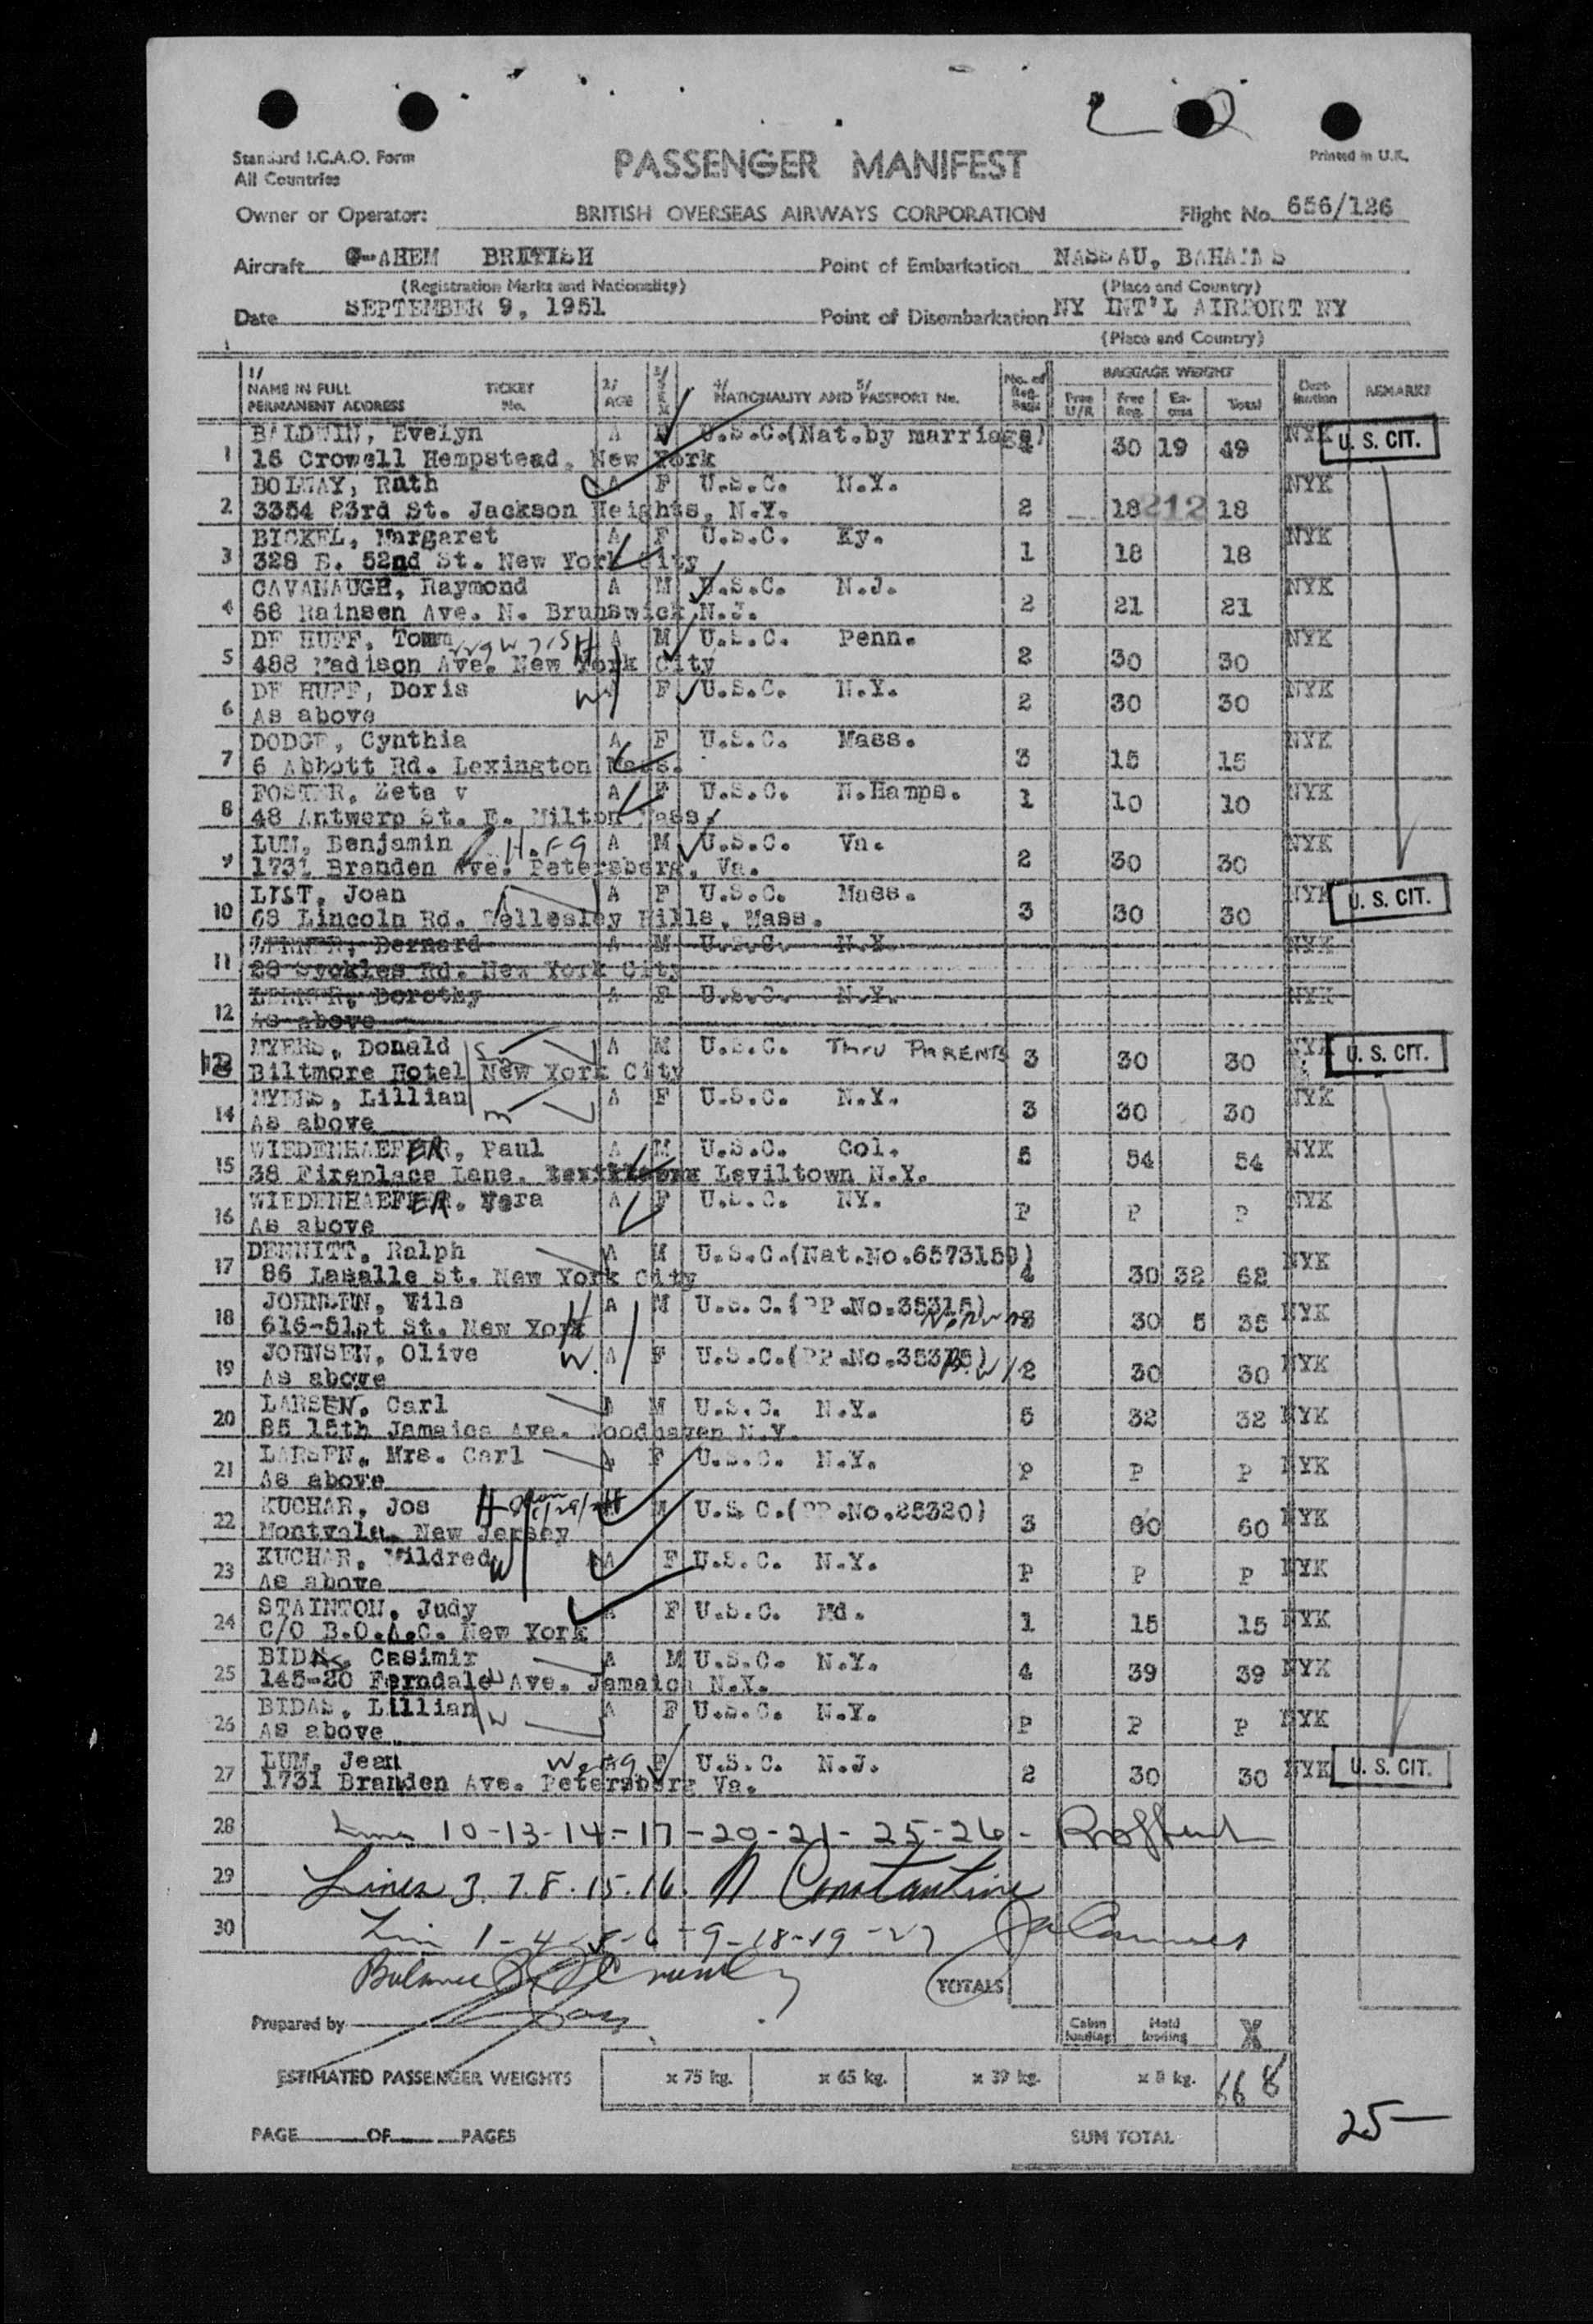 Standard I.C.A.O. Form
All Countries
PASSENGER MANIFEST
Printed in U.K.
Owner or Operator: BRITISH OVERSEAS AIRWAYS CORPORATION Flight No. 656/126
Aircraft G-AHEM BRITISH Point of Embarkation NASSAU, BAHAMAS
(Registration Marks and Nationality) (Place and Country)
Date SEPTEMBER 9, 1951 Point of Disembarkation NY INT'L AIRPORT NY
(Place and Country)
1/ NAME IN FULL PERMANENT ADDRESS TICKET No. 2/ AGE 3/ SEX 4/ NATIONALITY AND 5/ PASSPORT No. No. of Reg. Bags BAGGAGE WEIGHT Free U/R Free Reg. Ex-cess Total Dest-ination REMARKS
1 BALDWIN, Evelyn A F U.S.C.(Nat.by marriage) 30 19 49 NYK U. S. CIT.
15 Crowell Hempstead, New York
2 BOLWAY, Ruth A F U.S.C. N.Y. 2 18 212 18 NYK
3354 83rd St. Jackson Heights, N.Y.
3 BICKEL, Margaret A F U.S.C. Ky. 1 18 18 NYK
328 E. 52nd St. New York City
4 CAVANAUGH, Raymond A M U.S.C. N.J. 2 21 21 NYK
68 Hainsen Ave. N. Brunswick,N.J.
5 DE HUFF, Tomm H A M U.S.C. Penn. 2 30 30 NYK
488 Madison Ave. New York City
6 DE HUFF, Doris W F U.S.C. N.Y. 2 30 30 NYK
As above
7 DODGE, Cynthia A F U.S.C. Mass. 3 15 15 NYK
6 Abbott Rd. Lexington Mass.
8 FOSTER, Zeta v A F U.S.C. N.Hamps. 1 10 10 NYK
48 Antwerp St. E. Milton Mass.
9 LUM, Benjamin A M U.S.C. Va. 2 30 30 NYK
1731 Branden Ave. Petersberg, Va.
10 LIST, Joan A F U.S.C. Mass. 3 30 30 NYK U. S. CIT.
68 Lincoln Rd. Wellesley Hills, Mass.
11 Bernard A M U.S.C. N.Y. NYK
Rd. New York City
12 Dorothy A F U.S.C. N.Y. NYK
As above
13 MYERS, Donald A M U.S.C. THRU PARENTS 3 30 30 NYK U. S. CIT.
Biltmore Hotel New York City
14 MYERS, Lillian A F U.S.C. N.Y. 3 30 30 NYK
As above
15 WIEDENHAEFER, Paul A M U.S.C. Col. 5 54 54 NYK
38 Fireplace Lane. Leviltown N.Y.
16 WIEDENHAEFER. Vera A F U.S.C. NY. P P P NYK
As above
17 DEWNITT, Ralph A M U.S.C.(Nat.No.6573150) 4 30 32 62 NYK
86 Lasalle St. New York City
18 JOHNSEN, Wils H A M U.S.C.(PP.No.35315) 3 30 5 35 NYK
616-51st St. New York
19 JOHNSEN, Olive W. A F U.S.C.(PP.No.35315) 2 30 30 NYK
As above
20 LARSEN, Carl A M U.S.C. N.Y. 5 32 32 NYK
85 15th Jamaica Ave. Woodhaven N.Y.
21 LARSEN, Mrs. Carl A F U.S.C. N.Y. P P P NYK
As above
22 KUCHAR, Jos H M U.S.C.(PP.No.25320) 3 60 60 NYK
Montvale, New Jersey
23 KUCHAR, Mildred W A F U.S.C. N.Y. P P P NYK
As above
24 STAINTON, Judy A F U.S.C. Md. 1 15 15 NYK
C/O B.O.A.C. New York
25 BIDAS, Casimir A M U.S.C. N.Y. 4 39 39 NYK
145-20 Ferndale Ave. Jamaica N.Y.
26 BIDAS, Lillian W A F U.S.C. N.Y. P P P NYK
As above
27 LUM, Jean A F U.S.C. N.J. 2 30 30 NYK U. S. CIT.
1731 Branden Ave. Petersberg Va.
28 Lines 10-13-14-17-20-21-25-26-
29 Lines 3.7.8.15.16. N Constantine
30 Lin 1-4-5-6-9-18-19-27
Balance
TOTALS
Prepared by
Cabin loading Hold loading X
ESTIMATED PASSENGER WEIGHTS x 75 kg. x 65 kg. x 39 kg. x 8 kg. 668
PAGE OF PAGES SUM TOTAL
25-